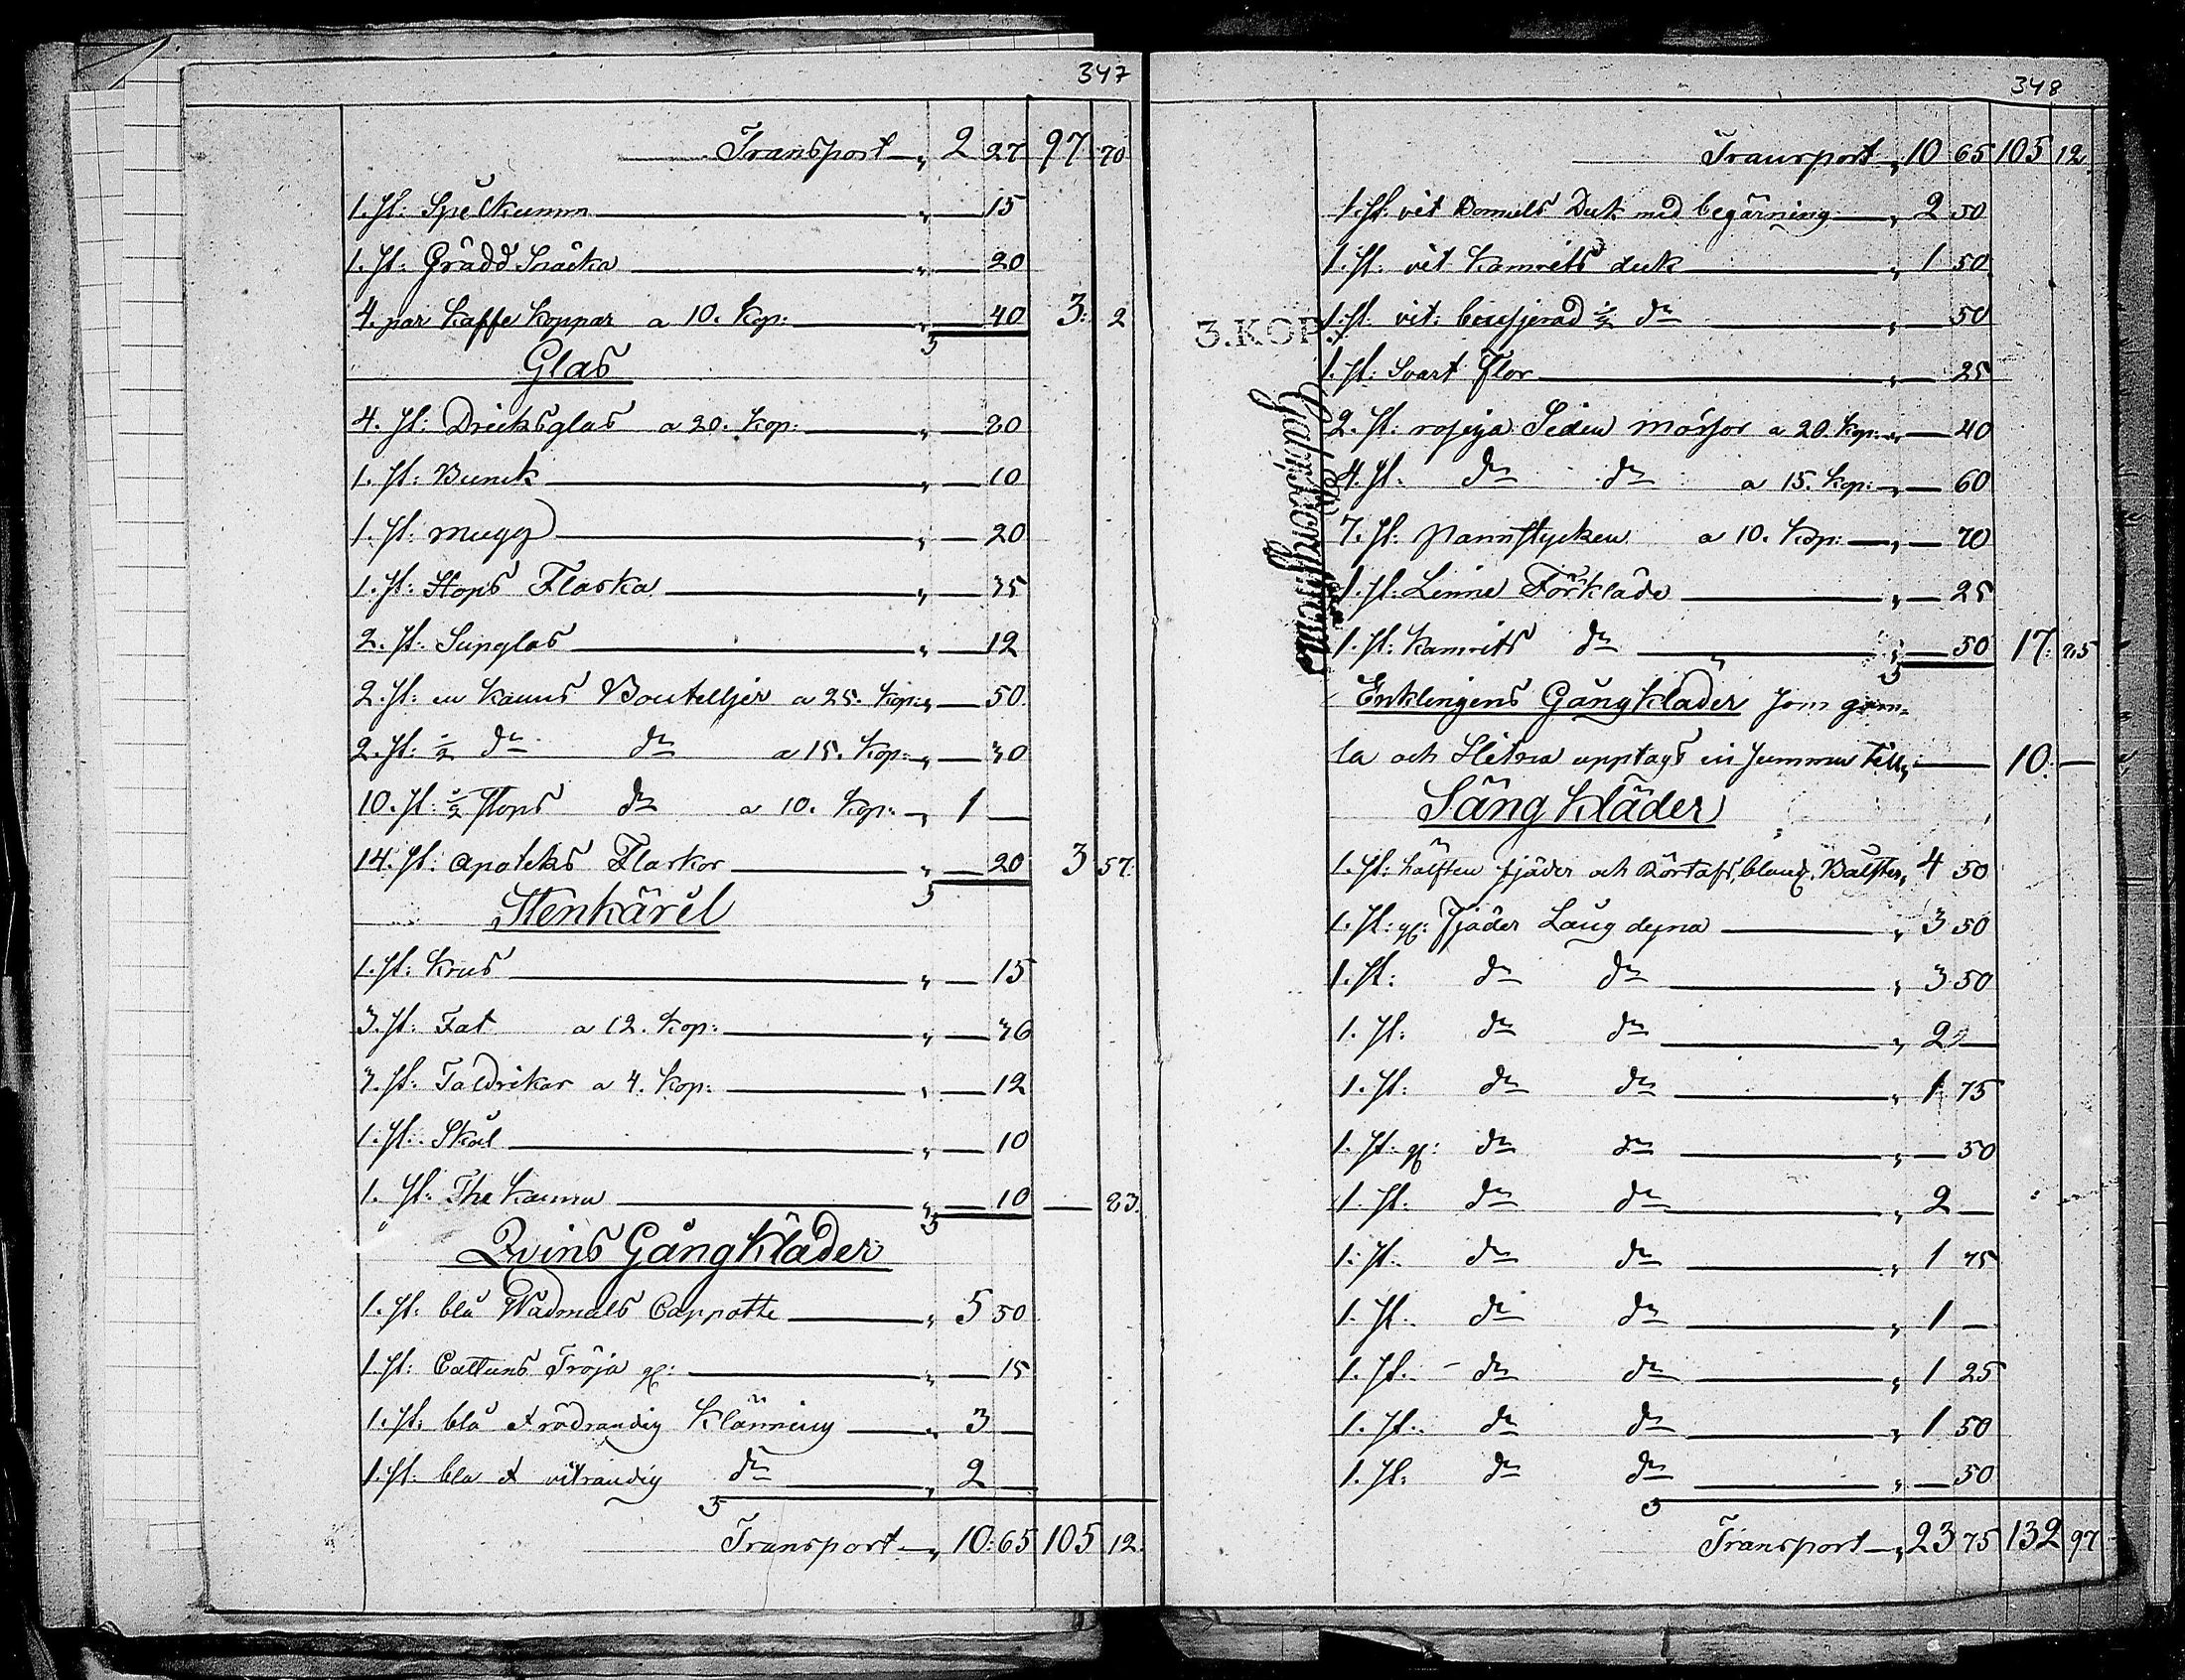 347
Transport „ 2 27 97 70
1. st: Spelkumm „ — 15
1. st: Grädd Snäcka „ — 20
4. par Kaffe Koppar a 10. Kop: „ — 40 3: 2
Glas
4. st: Dricksglas a 20. Kop: „ — 80
1. st: Bunck „ — 10
1. st: mugg „ — 20
1. st: Stops Flaska „ — 35
2. st: Supglas „ — 12
2. st: en Kanns Boutelljer a 25. Kop: „ — 50
2. st: ½ do do a 15. Kop: „ — 30
10. st: ½ Stops do a 10. Kop: „ 1 —
14. st: apoteks Flaskor „ — 20 3 57
Stenkäril
1. st: Krus „ — 15
3. st: Fat a 12. Kop: „ — 36
3. st: Taldrikar a 4. Kop: „ — 12
1. st: Skål „ — 10
1. st: The Kanna „ — 10 — 83
Qvins Gångkläder
1. st: blå Wadmals Cappotte „ 5 50
1. st: Cattuns Tröja gl: „ — 15
1. st: blå & rödrandig Klänning „ 3 —
1. st: bla & vitrandig do „ 2 —
Transport „ 10: 65 105 12
348
Transport „ 10 65 105 12
1. st: vit Bomuls Duk med begärning „ 2 50
1. st: vit Kamrits duk „ 1 50
3. KOP.
1. st: vit: ½ do „ 50
1. st: Svart Flor „ — 25
2. st: Siden mössor a 20. Kop: „ — 40
4. st: do do a 15. Kop: „ — 60
7. st: Pannstycken a 10. Kop: „ — 70
1. st: Linne Förkläde „ — 25
1. st: Kamrits do „ — 50 17: 25
Enklingens Gångkläder som gam=
la och Slitna upptags en summa till „ — 10: —
Sängkläder
1. st: hälften fjäder och bland. Bålster „ 4 50
1. st: gl: Fjäder Lång dyna „ 3 50
1. st: do do „ 3 50
1. st: do do „ 2 —
1. st: do do „ 1 75
1. st: gl: do do „ — 50
1. st: do do „ 2 —
1. st: do do „ 1 75
1. st: do do „ 1 —
1. st: do do „ 1 25
1. st: do do „ 1 50
1. st: do do „ — 50
Transport „ 23 75 132 97